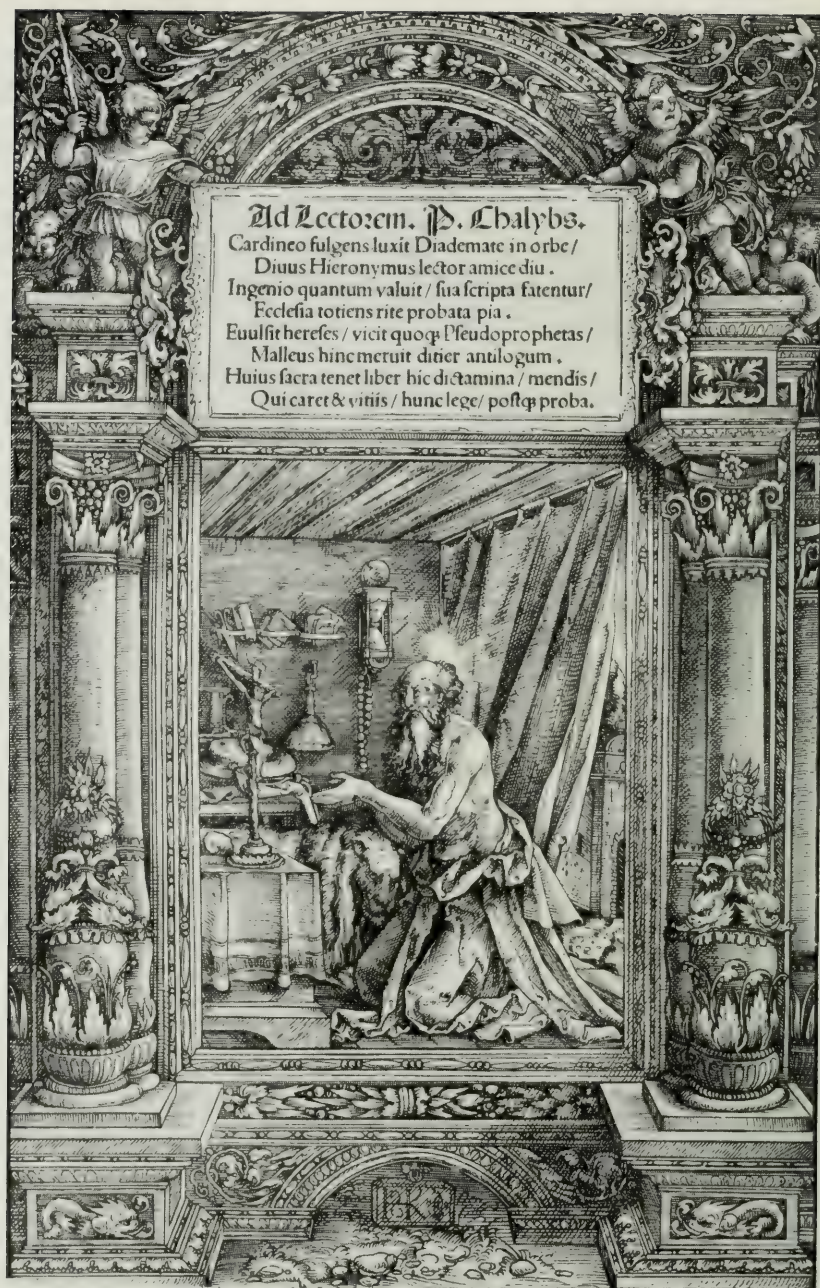 Ad Lectorem. P. Chalybs.
Cardineo fulgens luxit Diademate in orbe/
Diuus Hieronymus lector amice diu.
Ingenio quantum valuit/ sua scripta fatentur/
Ecclesia totiens rite probata pia.
Euulsit hereses/ vicit quoqꝫ Pseudoprophetas/
Malleus hinc meruit dicier antilogum.
Huius sacra tenet liber hic dictamina/ mendis/
Qui caret & vitiis/ hunc lege/ postqꝫ proba.